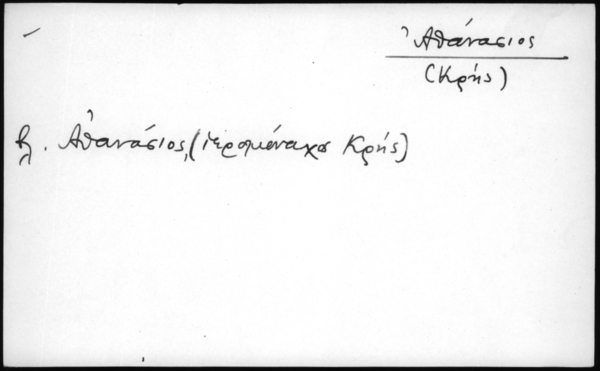 Ἀθανάσιος
(Κρής)
βλ. Ἀθανάσιος, (ἱερομόναχος Κρής)